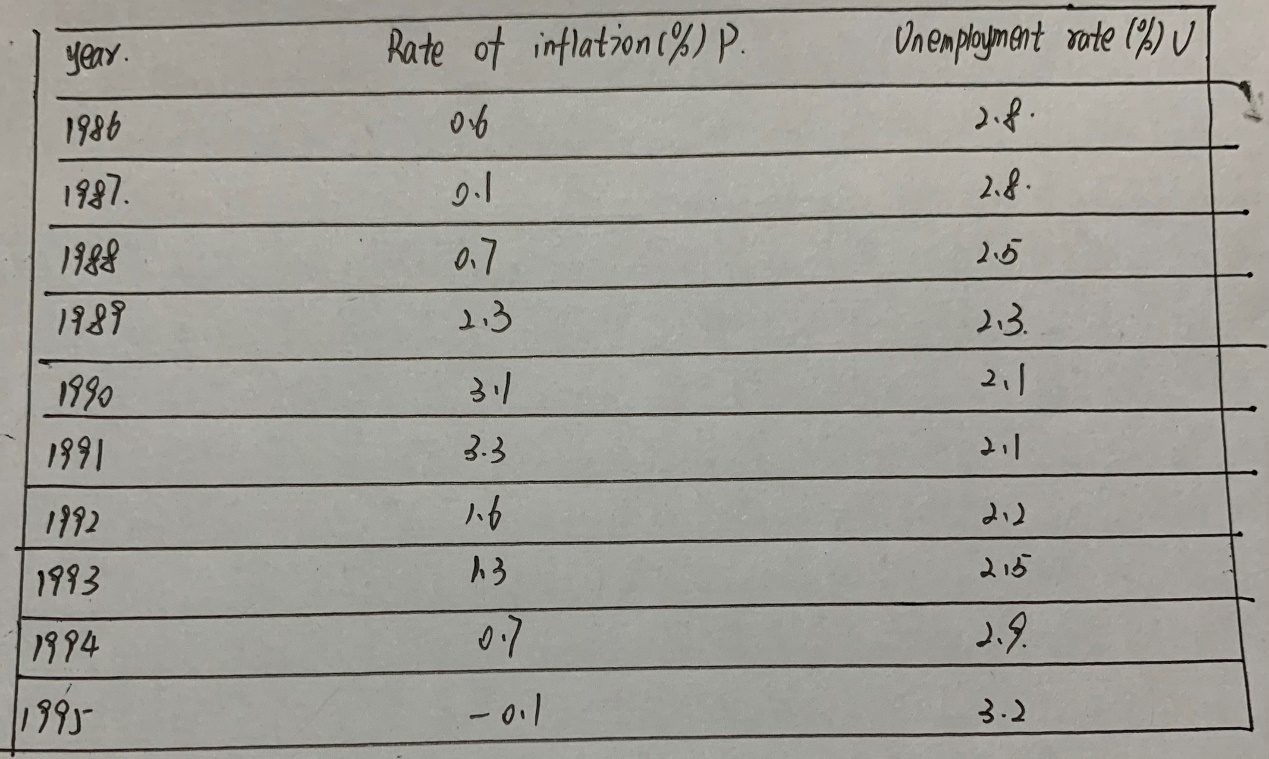 year. Rate of inflation (%) P. Unemployment rate (%) U
1986 0.6 2.8.
1987. 0.1 2.8.
1988 0.7 2.5
1989 2.3 2.3.
1990 3.1 2.1
1991 3.3 2.1
1992 1.6 2.2
1993 1.3 2.5
1994 0.7 2.9.
1995 -0.1 3.2